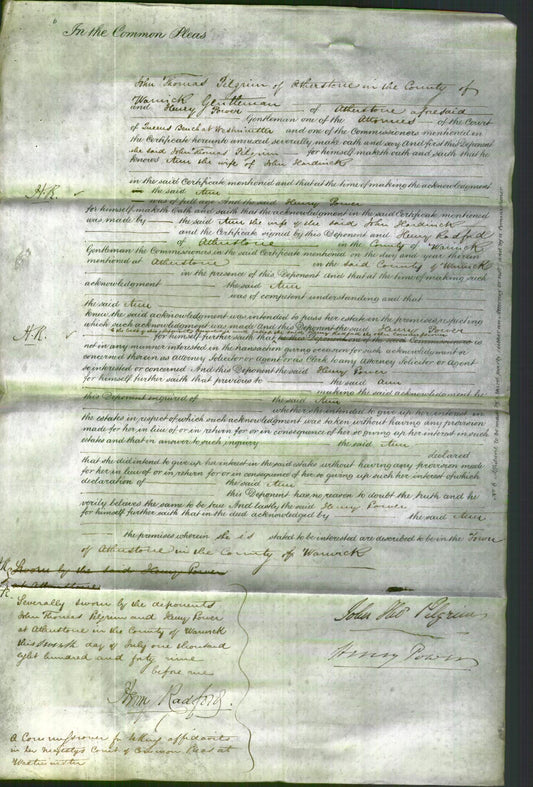 In the Common Pleas
John Thomas Pilgrim of Atherstone in the County of
Warwick Gentleman
and Henry Power of Atherstone aforesaid
Gentleman one of the Attornies of the Court
of Queens Bench at Westminster and one of the Commissioners mentioned in
the Certificate hereunto annexed severally make oath and say And first this Deponent
the said John Thomas Pilgrim for himself maketh oath and saith that he
knows Ann the wife of John Hardwick
in the said Certificate mentioned and that at the time of making the acknowledgment
H.R. the said Ann
was of full age And the said Henry Power
for himself maketh Oath and saith that the acknowledgment in the said Certificate mentioned
was made by the said Ann the wife of the said John Hardwick
and the Certificate signed by this Deponent and Henry Radford
of Atherstone in the County of Warwick
Gentleman the Commissioners in the said Certificate mentioned on the day and year therein
mentioned at Atherstone in the said County of Warwick
in the presence of this Deponent and that at the time of making such
acknowledgment the said Ann
was of competent understanding and that
the said Ann
knew the said acknowledgment was intended to pass her estate in the premises respecting
which such acknowledgment was made And this Deponent the said Henry Power
H.R. for himself further saith that is
not in any manner interested in the transaction giving occasion for such acknowledgment or
concerned therein as Attorney Solicitor or Agent or as Clerk to any Attorney Solicitor or Agent
so interested or concerned And this Deponent the said Henry Power
for himself further saith that previous to the said Ann
making the said acknowledgment he
this Deponent inquired of the said Ann
whether she intended to give up her interest in
the estates in respect of which such acknowledgment was taken without having any provision
made for her in lieu of or in return for or in consequence of her so giving up her interest in such
estate and that in answer to such inquiry the said Ann
declared
that she did intend to give up her interest in the said estate without having any provision made
for her in lieu of or in return for or in consequence of her so giving up such her interest of which
declaration of the said Ann
this Deponent has no reason to doubt the truth and he
verily believes the same to be true And lastly the said Henry Power
for himself further saith that in the deed acknowledged by the said Ann
the premises wherein she is stated to be interested are described to be in the Town
of Atherstone in the County of Warwick
Sworn by the said Henry Power
at Atherstone
Severally sworn by the deponents
John Thomas Pilgrim and Henry Power
at Atherstone in the County of Warwick
this Seventh day of July one thousand
eight hundred and forty nine
before me
John Thos Pilgrim
Henry Power
Radford
A Commissioner for taking affidavits
in her Majestys Court of Common Pleas at
Westminster